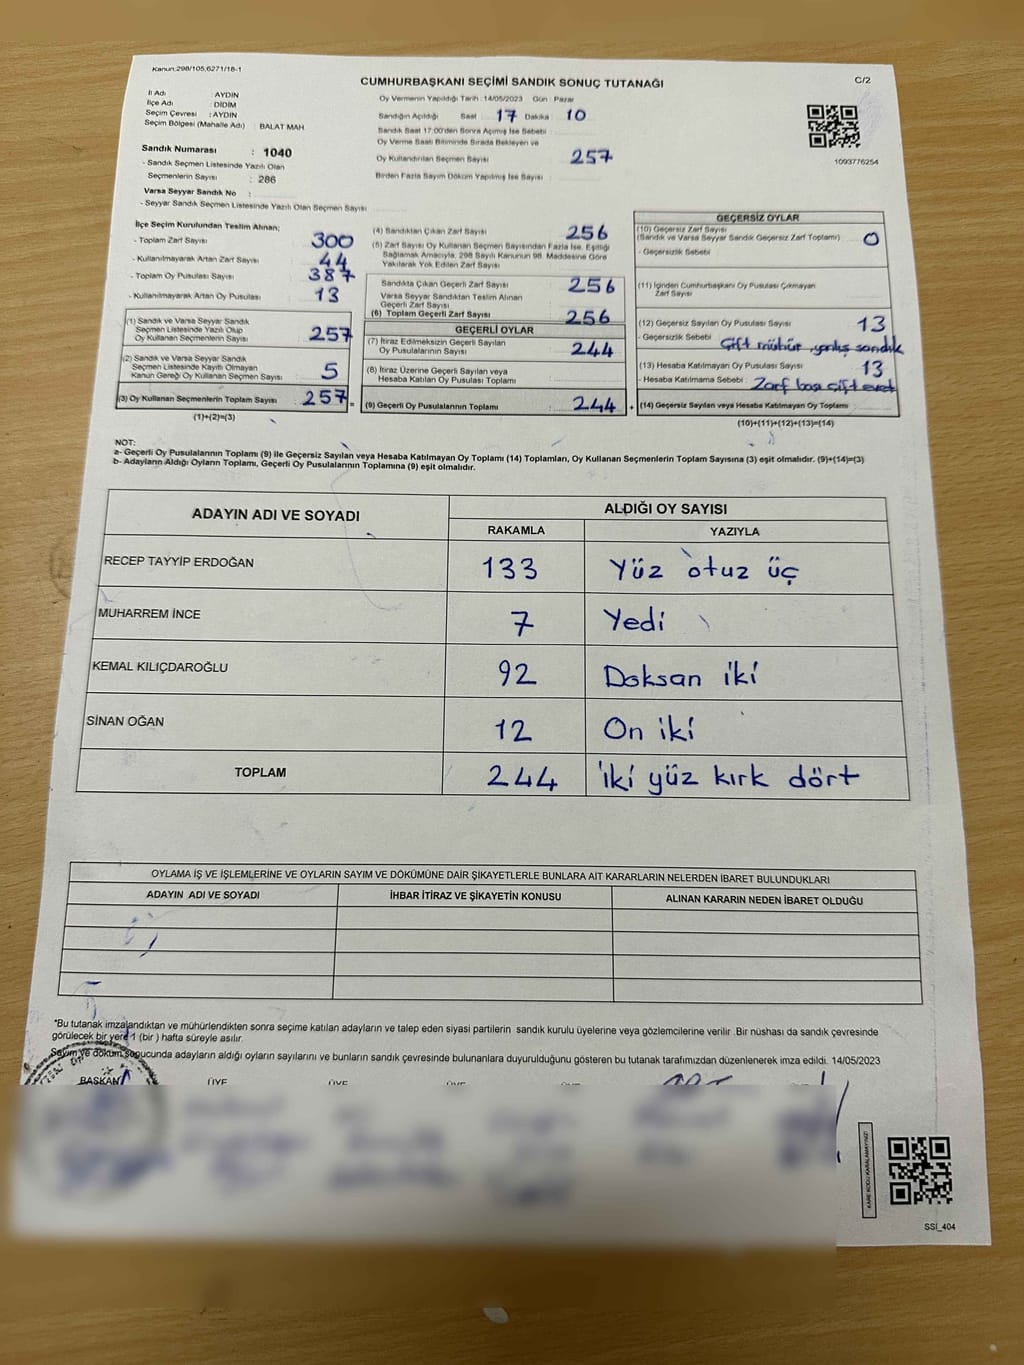 Kanun:298/105,6271/18-1
CUMHURBAŞKANI SEÇİMİ SANDIK SONUÇ TUTANAĞI
C/2
İl Adı : AYDIN
İlçe Adı : DİDİM
Seçim Çevresi : AYDIN
Seçim Bölgesi (Mahalle Adı) : BALAT MAH.
Sandık Numarası : 1040
- Sandık Seçmen Listesinde Yazılı Olan
Seçmenlerin Sayısı : 286
Varsa Seyyar Sandık No :
- Seyyar Sandık Seçmen Listesinde Yazılı Olan Seçmen Sayısı
Oy Vermenin Yapıldığı Tarih : 14/05/2023 Gün : Pazar
Sandığın Açıldığı Saat 17 Dakika 10
Sandık Saat 17:00'den Sonra Açılmış İse Sebebi
Oy Verme Saati Bitiminde Sırada Bekleyen ve
Oy Kullandırılan Seçmen Sayısı 257
Birden Fazla Sayım Döküm Yapılmış İse Sayısı
1093776254
İlçe Seçim Kurulundan Teslim Alınan;
- Toplam Zarf Sayısı 300
- Kullanılmayarak Artan Zarf Sayısı 44
- Toplam Oy Pusulası Sayısı 387
- Kullanılmayarak Artan Oy Pusulası 13
(1) Sandık ve Varsa Seyyar Sandık
Seçmen Listesinde Yazılı Olup
Oy Kullanan Seçmenlerin Sayısı 257
(2) Sandık ve Varsa Seyyar Sandık
Seçmen Listesinde Kayıtlı Olmayan
Kanun Gereği Oy Kullanan Seçmen Sayısı 5
(3) Oy Kullanan Seçmenlerin Toplam Sayısı 257 =
(1)+(2)=(3)
(4) Sandıktan Çıkan Zarf Sayısı 256
(5) Zarf Sayısı Oy Kullanan Seçmen Sayısından Fazla İse, Eşitliği
Sağlamak Amacıyla, 298 Sayılı Kanunun 98. Maddesine Göre
Yakılarak Yok Edilen Zarf Sayısı
Sandıkta Çıkan Geçerli Zarf Sayısı 256
Varsa Seyyar Sandıktan Teslim Alınan
Geçerli Zarf Sayısı
(6) Toplam Geçerli Zarf Sayısı 256
GEÇERLİ OYLAR
(7) İtiraz Edilmeksizin Geçerli Sayılan
Oy Pusulalarının Sayısı 244
(8) İtiraz Üzerine Geçerli Sayılan veya
Hesaba Katılan Oy Pusulası Toplamı
(9) Geçerli Oy Pusulalarının Toplamı 244 +
GEÇERSİZ OYLAR
(10) Geçersiz Zarf Sayısı
(Sandık ve Varsa Seyyar Sandık Geçersiz Zarf Toplamı) 0
- Geçersizlik Sebebi
(11) İçinden Cumhurbaşkanı Oy Pusulası Çıkmayan
Zarf Sayısı
(12) Geçersiz Sayılan Oy Pusulası Sayısı 13
- Geçersizlik Sebebi Çift mühür, yanlış sandık
(13) Hesaba Katılmayan Oy Pusulası Sayısı 13
- Hesaba Katılmama Sebebi : Zarf başı çift evet
(14) Geçersiz Sayılan veya Hesaba Katılmayan Oy Toplamı
(10)+(11)+(12)+(13)=(14)
NOT:
a- Geçerli Oy Pusulalarının Toplamı (9) ile Geçersiz Sayılan veya Hesaba Katılmayan Oy Toplamı (14) Toplamları, Oy Kullanan Seçmenlerin Toplam Sayısına (3) eşit olmalıdır. (9)+(14)=(3)
b- Adayların Aldığı Oyların Toplamı, Geçerli Oy Pusulalarının Toplamına (9) eşit olmalıdır.
ADAYIN ADI VE SOYADI
ALDIĞI OY SAYISI
RAKAMLA YAZIYLA
RECEP TAYYİP ERDOĞAN 133 Yüz otuz üç
MUHARREM İNCE 7 Yedi
KEMAL KILIÇDAROĞLU 92 Doksan iki
SİNAN OĞAN 12 On iki
TOPLAM 244 iki yüz kırk dört
OYLAMA İŞ VE İŞLEMLERİNE VE OYLARIN SAYIM VE DÖKÜMÜNE DAİR ŞİKAYETLERLE BUNLARA AİT KARARLARIN NELERDEN İBARET BULUNDUKLARI
ADAYIN ADI VE SOYADI İHBAR İTİRAZ VE ŞİKAYETİN KONUSU ALINAN KARARIN NEDEN İBARET OLDUĞU
*Bu tutanak imzalandıktan ve mühürlendikten sonra seçime katılan adayların ve talep eden siyasi partilerin sandık kurulu üyelerine veya gözlemcilerine verilir .Bir nüshası da sandık çevresinde
görülecek bir yere 1 (bir ) hafta süreyle asılır.
Sayım ve döküm sonucunda adayların aldığı oyların sayılarını ve bunların sandık çevresinde bulunanlara duyurulduğunu gösteren bu tutanak tarafımızdan düzenlenerek imza edildi. 14/05/2023
BAŞKAN ÜYE ÜYE ÜYE
KARE KODU KARALAMAYINIZ!
SSI_404